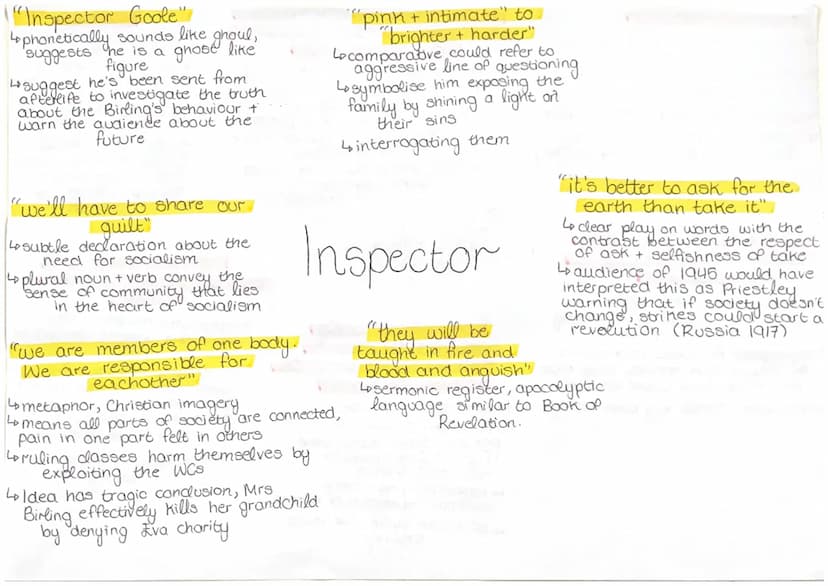 "Inspector Goole"
↳phonetically sounds like ghoul,
suggests he is a ghost like
figure
↳suggest he's been sent from
afterlife to investigate the truth
about the Birling's behaviour +
warn the audience about the
future
"pink + intimate" to
"brighter + harder"
↳comparative could refer to
aggressive line of questioning
↳symbolise him exposing the
family by shining a light on
their sins
↳interrogating them
"we'll have to share our
guilt"
↳subtle declaration about the
need for socialism
↳plural noun + verb convey the
sense of community that lies
in the heart of socialism
Inspector
"it's better to ask for the
earth than take it"
↳clear play on words with the
contrast between the respect
of ask + selfishness of take
↳audience of 1945 would have
interpreted this as Priestley
warning that if society doesn't
change, strikes could start a
revolution (Russia 1917)
"we are members of one body.
We are responsible for
eachother"
↳metaphor, Christian imagery
↳means all parts of society are connected,
pain in one part felt in others
↳ruling classes harm themselves by
exploiting the WCs
↳Idea has tragic conclusion, Mrs
Birling effectively kills her grandchild
by denying Eva charity
"they will be
taught in fire and
blood and anguish"
↳sermonic register, apocalyptic
language similar to Book of
Revelation.